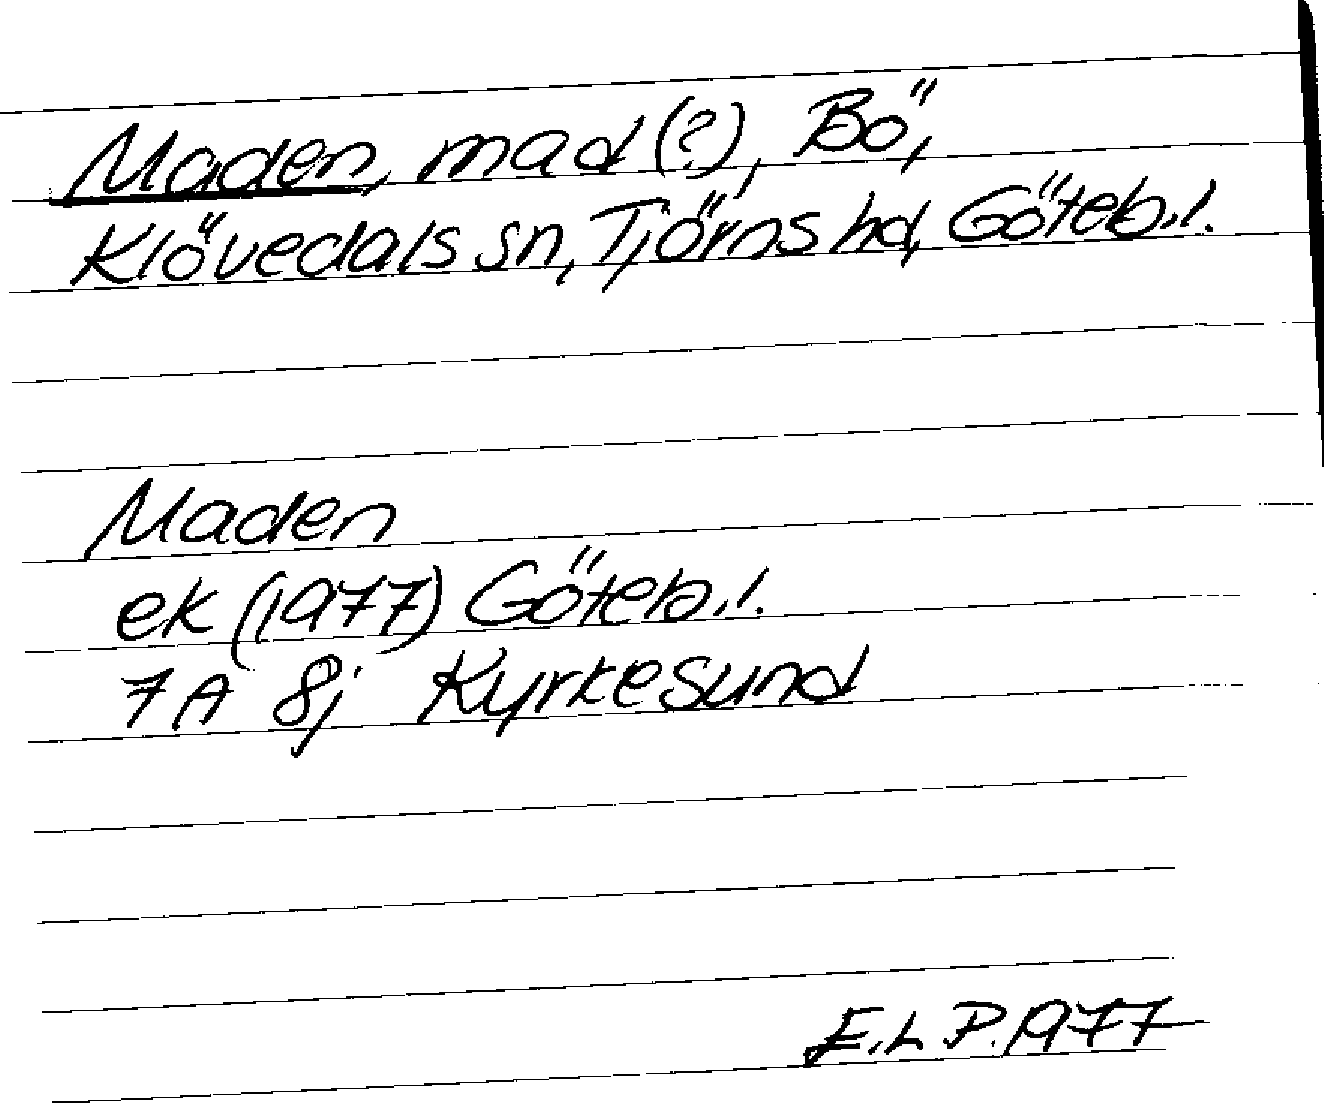 Maden, mad (?), Bö,
Klövedals sn, Tjörns hd, Göteb.l.
Maden
ek (1977) Göteb.l.
7A 8j Kyrkesund
E.L.P. 1977